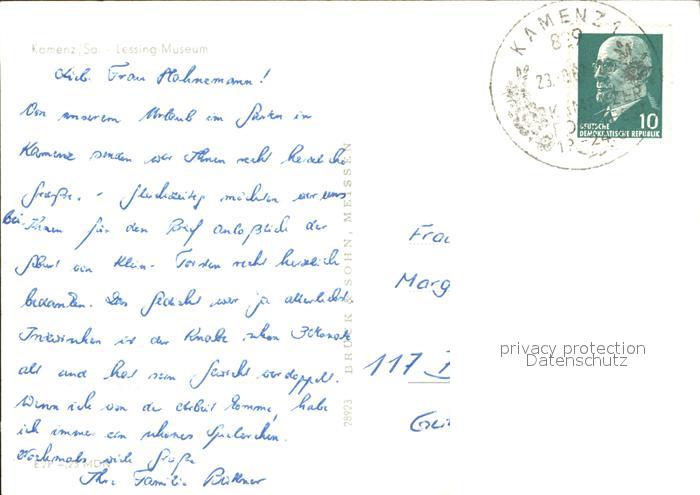 Kamenz/Sa. - Lessing-Museum
Lieb. Frau Hahnemann!
Von unserem Urlaub im Garten in
Kamenz senden wir Ihnen recht herzliche
Grüße. - Gleichzeitig möchten wir uns
bei Ihnen für den Brief anläßlich der
Geburt von Klein-Torsten recht herzlich
bedanken. Das Gedicht war ja allerliebst.
Inzwischen ist der Knabe schon 3 Monate
alt und hat sein Gewicht verdoppelt.
Wenn ich von der Arbeit komme, habe
ich immer ein schönes Spielchen.
Nochmals viele Grüße
Ihre Familie Büttner
28923 BRÜCK & SOHN, MEISSEN
KAMENZ 1
DEUTSCHE
DEMOKRATISCHE REPUBLIK
10
Frau
Marg
117
privacy protection
Datenschutz